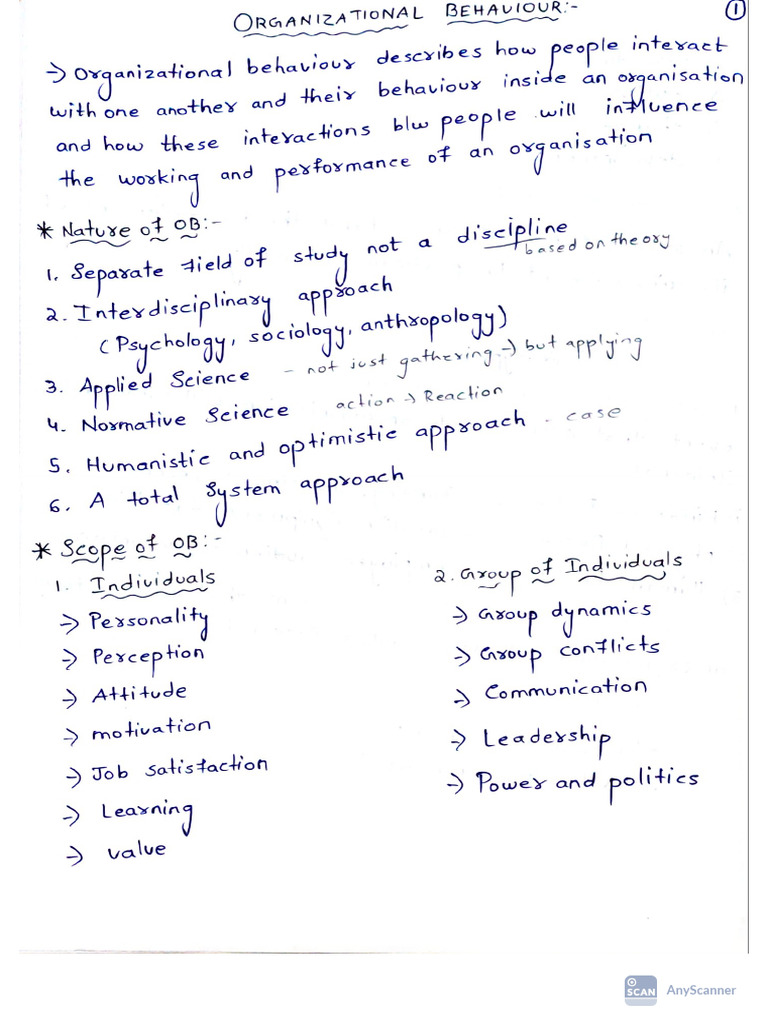 ORGANIZATIONAL BEHAVIOUR:- 1
→ Organizational behaviour describes how people interact
with one another and their behaviour inside an organisation
and how these interactions b/w people will influence
the working and performance of an organisation
* Nature of OB:-
1. Separate field of study not a discipline
based on theory
2. Interdisciplinary approach
(Psychology, sociology, anthropology)
3. Applied Science - not just gathering → but applying
4. Normative Science action → Reaction
5. Humanistic and optimistic approach . case
6. A total system approach
* Scope of OB:-
1. Individuals
→ Personality
→ Perception
→ Attitude
→ motivation
→ Job satisfaction
→ Learning
→ value
2. Group of Individuals
→ Group dynamics
→ Group conflicts
→ Communication
→ Leadership
→ Power and politics
SCAN AnyScanner